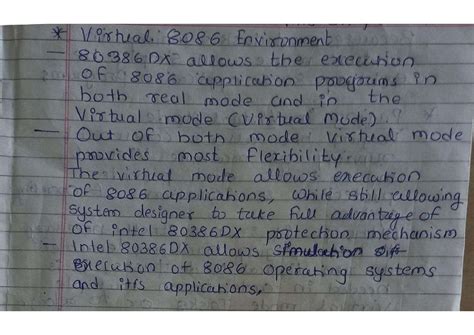 * Virtual 8086 Environment
— 80386DX allows the execution
of 8086 application programs in
both real mode and in the
Virtual mode (Virtual Mode)
— Out of both mode virtual mode
provides most flexibility.
The virtual mode allows execution
of 8086 applications, while still allowing
system designer to take full advantage of
of intel 80386DX protection mechanism
— Intel 80386DX allows simulation of
execution of 8086 operating systems
and itfs applications,